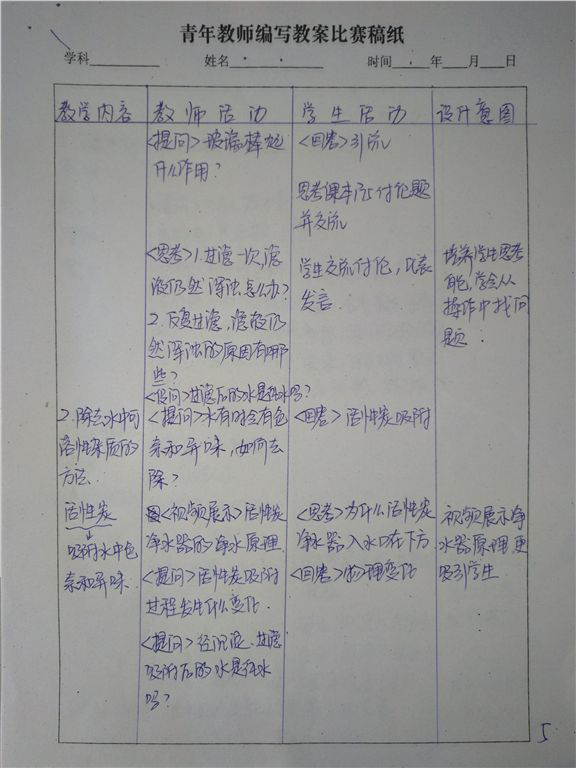 青年教师编写教案比赛稿纸
学科 姓名 时间 年 月 日
教学内容 教师活动 学生活动 设计意图
<提问>玻璃棒起
什么作用?
<回答>引流
思考课本上讨论题
并交流
<思考>1.过滤一次,滤
液仍然浑浊怎么办?
2.反复过滤,滤液仍
然浑浊的原因有哪
些?
<设问>过滤后的水是纯水吗?
学生交流讨论,代表
发言.
培养学生思考
能,学会从
操作中找问
题.
2.除去水中可
溶性杂质的
方法.
<提问>水有时会有色
素和异味,如何去
除?
<回答>活性炭吸附
活性炭
↓
吸附水中色
素和异味.
<视频展示>活性炭
净水器的净水原理.
<提问>活性炭吸附
过程发生什么变化.
<提问>经沉淀、过滤
吸附后的水是纯水
吗?
<思考>为什么活性炭
净水器入水口在下方
<回答>物理变化
视频展示净
水器原理,更
吸引学生.
5